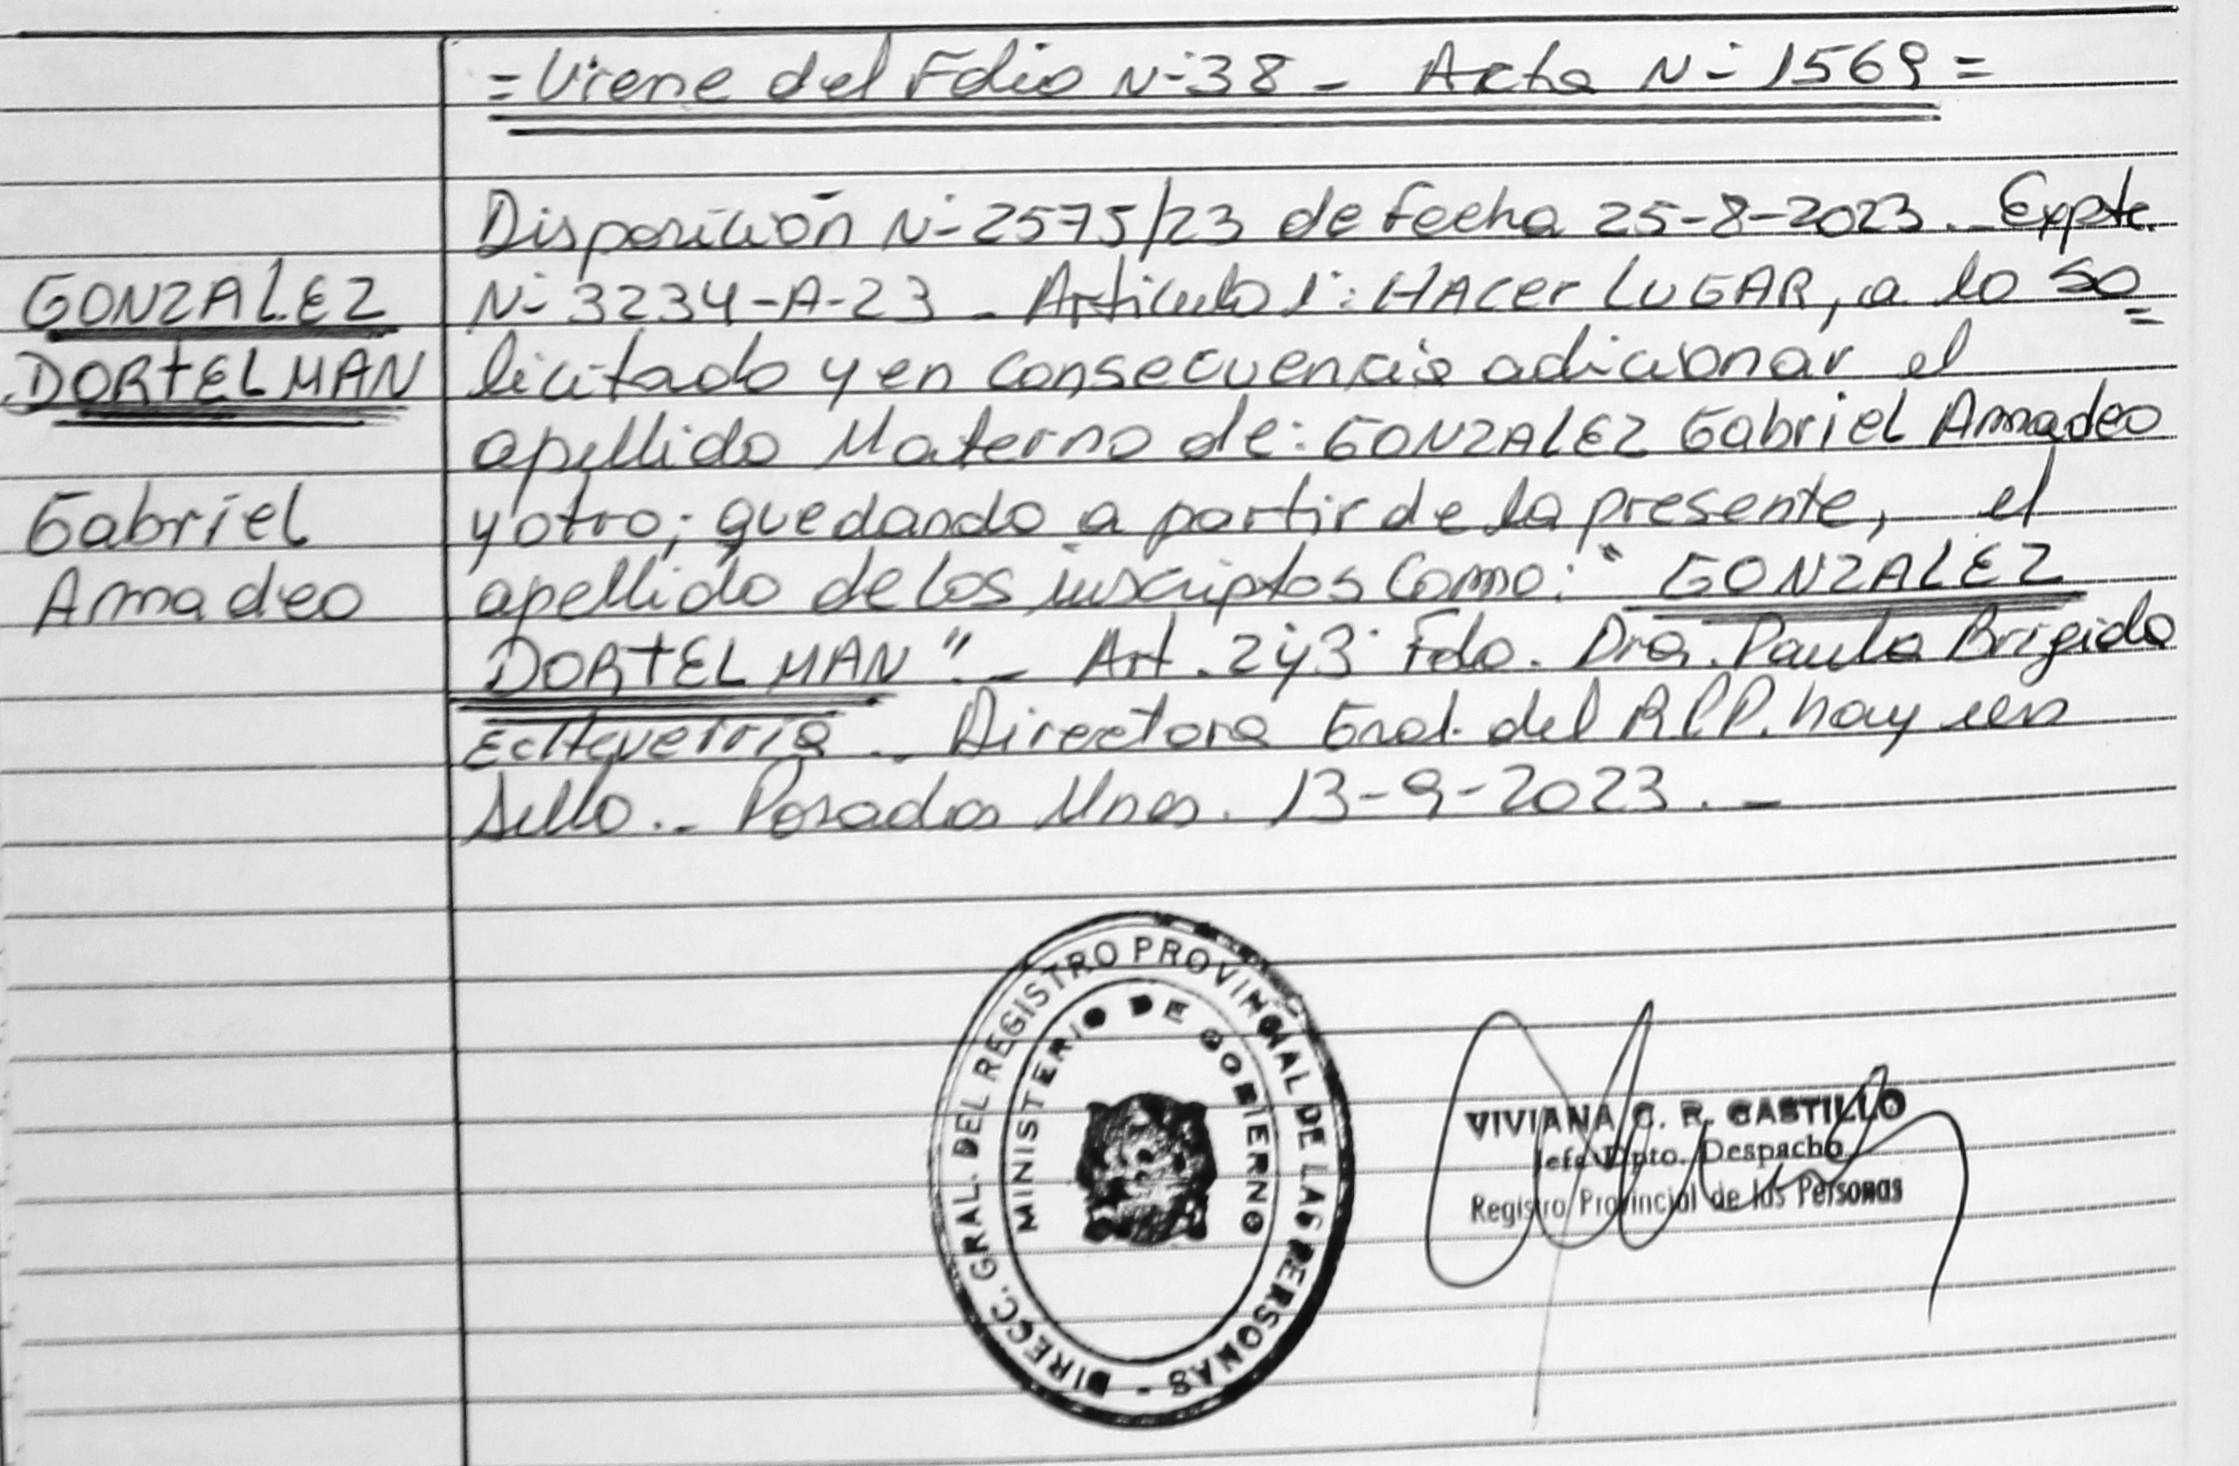 = Viene del Folio N- 38 - Acta N- 1569 =
Disposición N- 2575/23 de fecha 25-8-2023._ Expte.
N- 3234-A-23 _ Artículo 1°: HACER LUGAR, a lo so=
licitado y en consecuencia adicionar el
apellido Materno de: GONZALEZ Gabriel Amadeo
y otro; quedando a partir de la presente, el
apellido de los inscriptos como: "GONZALEZ
DORTELMAN"._ Art. 2 y 3 Fdo. Dra. Paula Brigida
Echeverria _ Directora Gral. del R.P.P. hay un
sello._ Posadas Mnes. 13-9-2023._
GONZALEZ
DORTELMAN
Gabriel
Amadeo
DIRECC. GRAL. DEL REGISTRO PROVINCIAL DE LAS PERSONAS -
MINISTERIO DE GOBIERNO
VIVIANA C. R. CASTILLO
Jefe Dpto. Despacho
Registro Provincial de las Personas